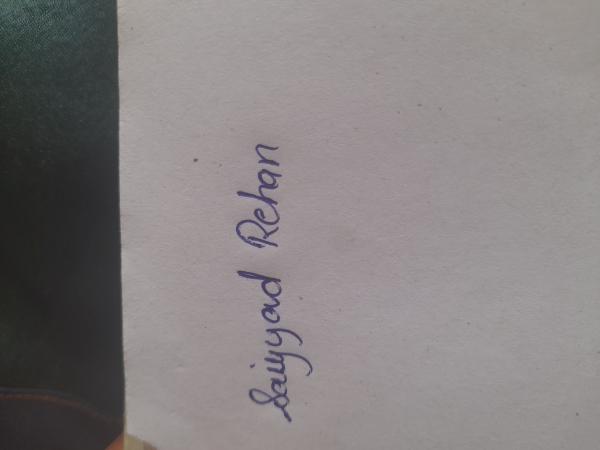 Saiyyad Rehan